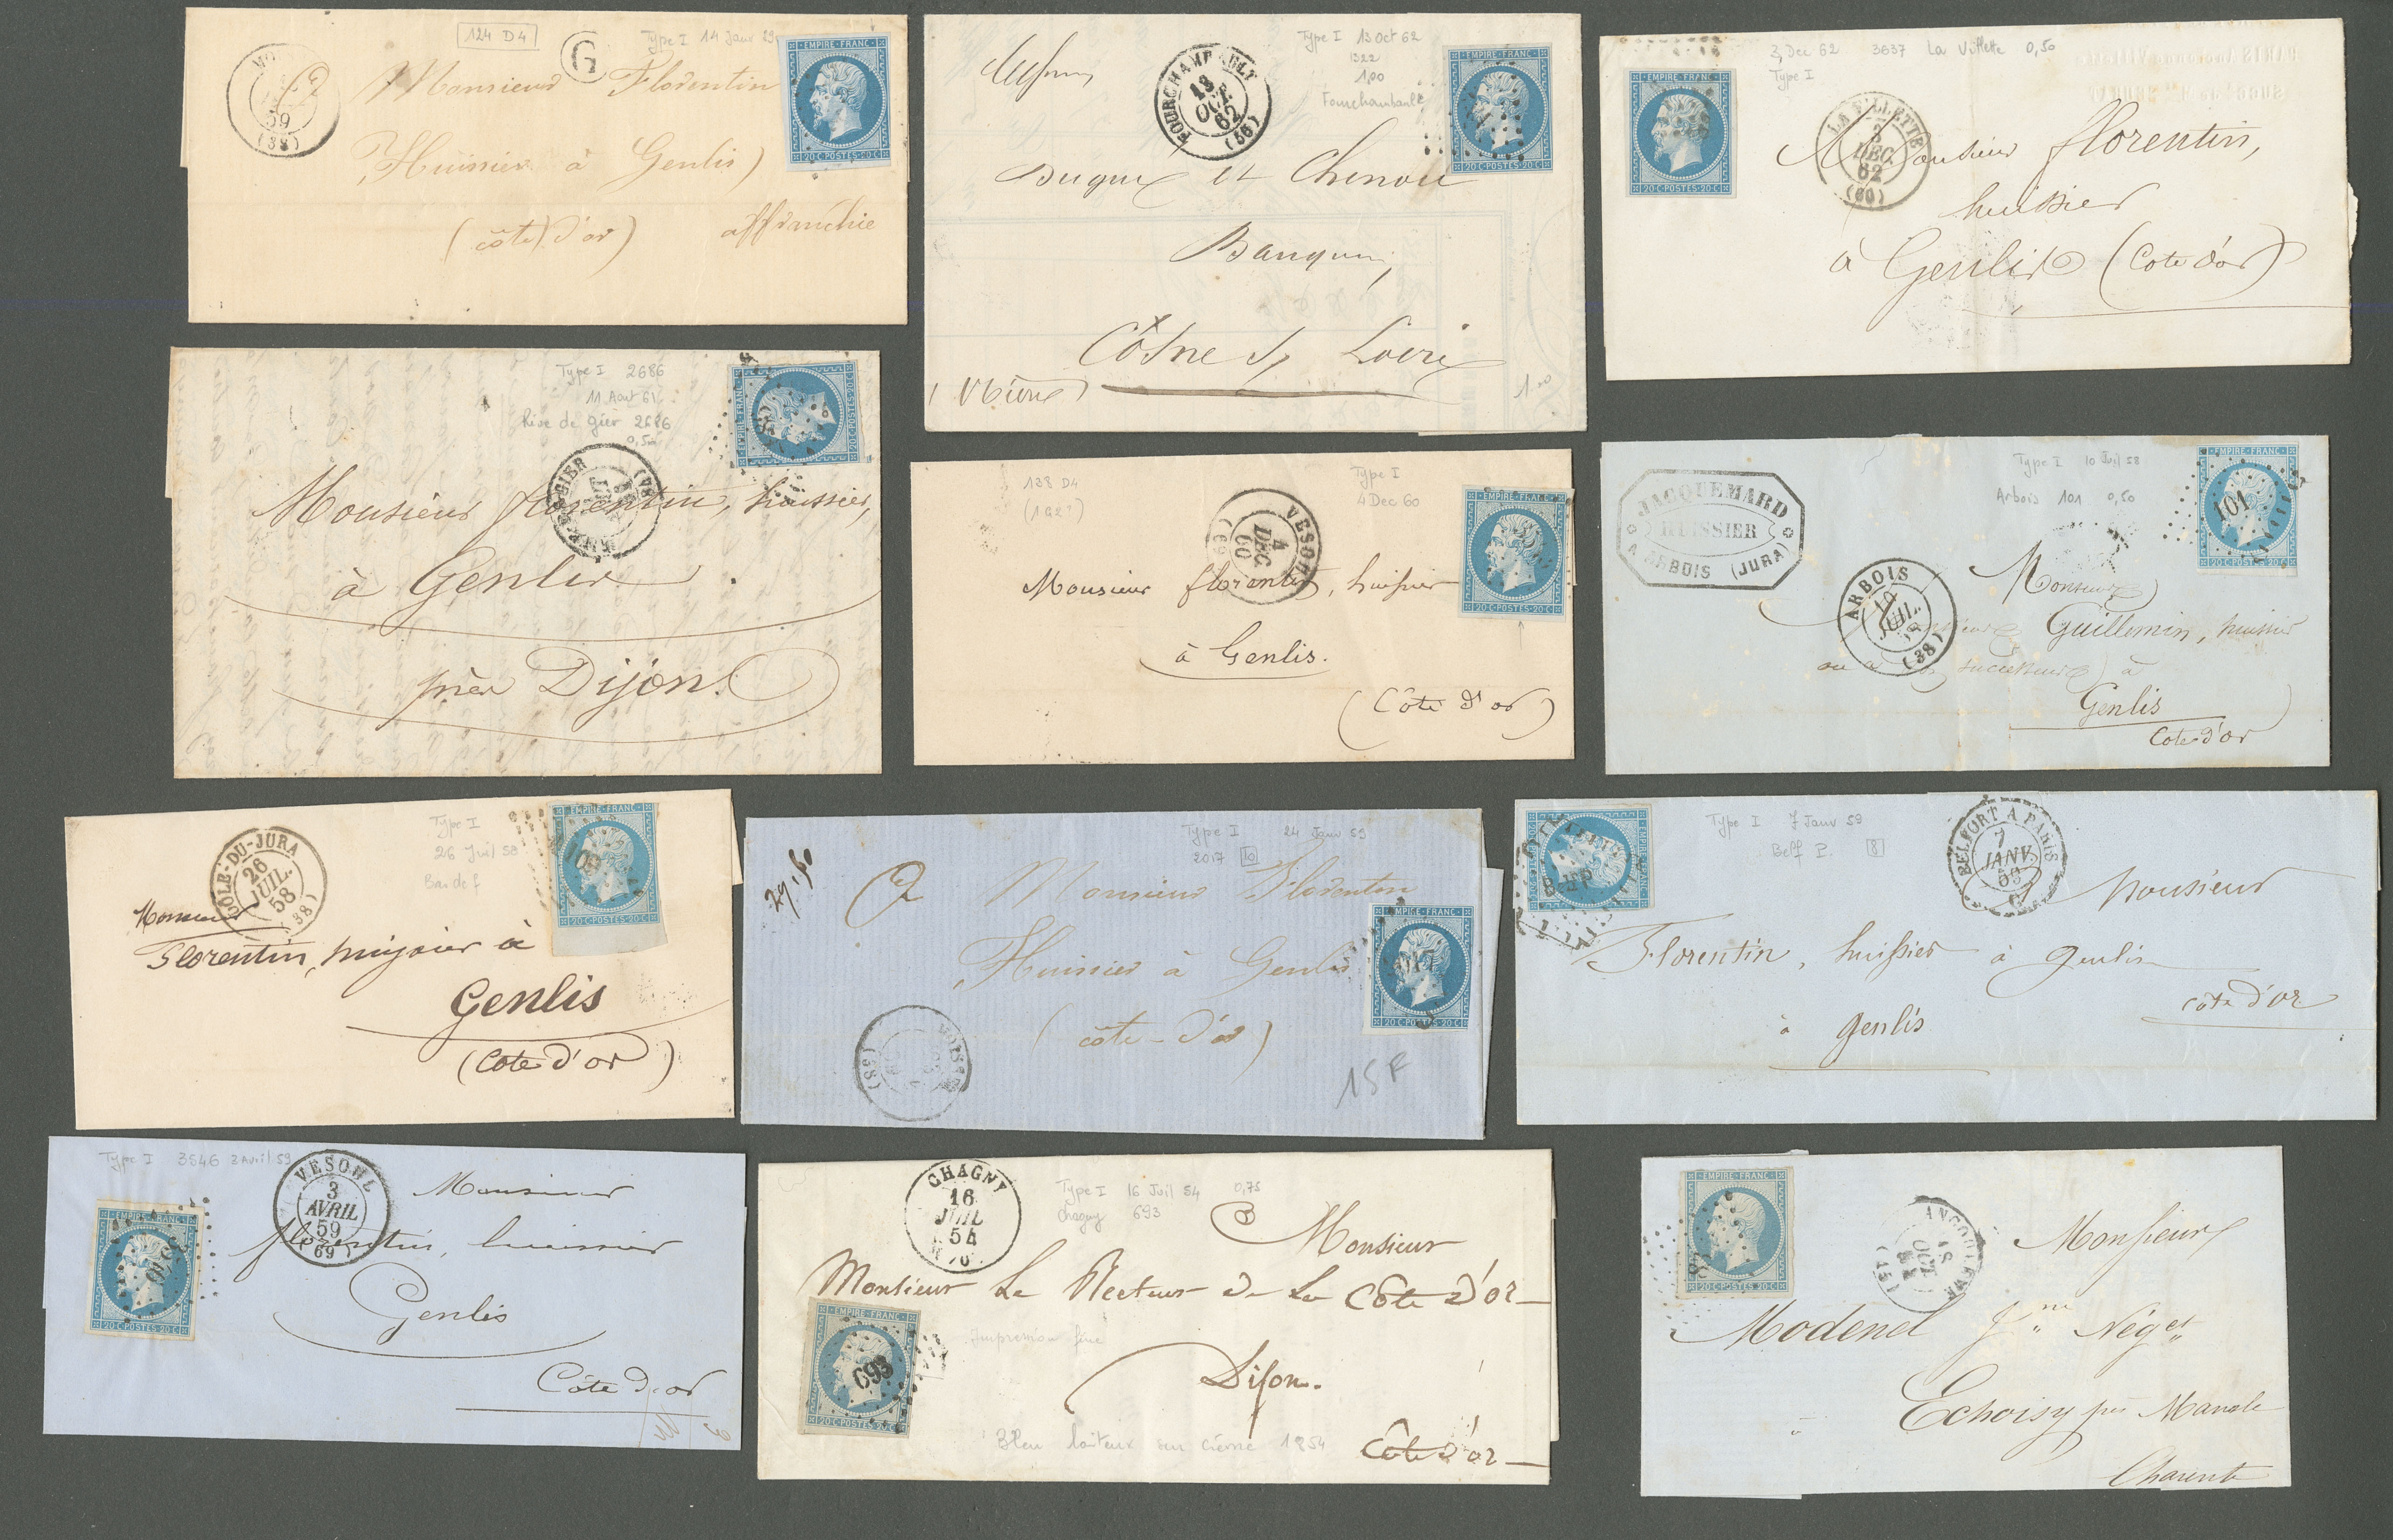 124 D4
Type I 14 Janv 29
G
59
(38)
EMPIRE·FRANC
20·C·POSTES·20·C
Monsieur Florentin
Huissier à Genlis
(côte d'or) affranchie
Type I 13 Oct 62
1322
1,00
Fourchambault
FOURCHAMBAULT
13
OCT.
62
(56)
EMPIRE·FRANC
20·C·POSTES·20·C
Banquiers
Côsne s/ Loire
(Nièvre)
1.00
3 Dec 62 3637 La Villette 0,50
Type I
EMPIRE·FRANC
20·C·POSTES·20·C
LA VILLETTE
3
DEC.
62
(60)
Monsieur florentin,
huissier
à Genlis (Cote d'or)
Type I 2686
11 Aout 61
Rive de gier 2686
0,50
EMPIRE·FRANC
20·C·POSTES·20·C
Monsieur florentin, huissier,
à Genlis
près Dijon
138 D4
(192?)
Type I
4 Dec 60
EMPIRE·FRANC
20·C·POSTES·20·C
VESOUL
4
DEC.
60
(69)
Monsieur florentin, huissier
à Genlis.
(Côte d'or)
Type I 10 Juil 58
Arbois 101 0,50
JACQUEMARD
HUISSIER
A ARBOIS (JURA)
101
20·C·POSTES·20·C
ARBOIS
10
JUIL.
(38)
Monsieur
Guillemin, huissier
ou à son successeur à
Genlis
Cote d'or
Type I
26 Juil 58
Bar de f
DOLE-DU-JURA
26
JUIL.
58
(38)
EMPIRE·FRANC
20·C·POSTES·20·C
Monsieur
Florentin, huissier à
Genlis
(Cote d'or)
Type I 24 Janv 59
2017 10
A Monsieur Florentin
Huissier à Genlis
(côte-d'or)
EMPIRE·FRANC
2017
20·C·POSTES·20·C
(38)
15F
Type I 7 Janv 59
Belf P. 8
B·P
BELFORT A PARIS
7
JANV.
Monsieur
Florentin, huissier à genlis
côte d'or
à genlis
Type I 3546 3 Avril 59
VESOUL
3
AVRIL
59
(69)
EMPIRE·FRANC
20·C·POSTES·20·C
Monsieur
florentin, huissier
Genlis
Côte d'or
CHAGNY
16
JUIL
54
Type I 16 Juil 54 0,75
Chagny 693
Monsieur
Monsieur Le Recteur de La Côte d'or
EMPIRE·FRANC
693
20·C·POSTES·20·C
Impression fine
Dijon.
Bleu laiteux sur crème 1854
Côte d'or
EMPIRE·FRANC
20·C·POSTES·20·C
ANGOULEME
18
OCT
(15)
Monsieur
Modenel Jne Négt
Echoisy près Mansle
Charente